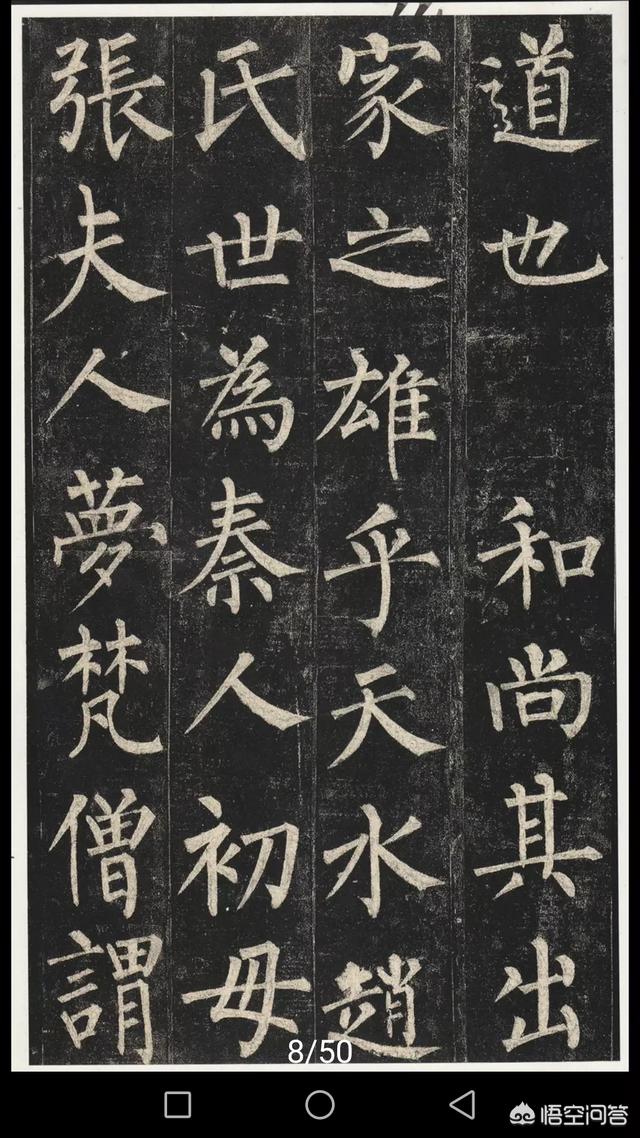 道也和尚其出
家之雄乎天水趙
氏世為秦人初母
張夫人夢梵僧謂
8/50
悟空问答